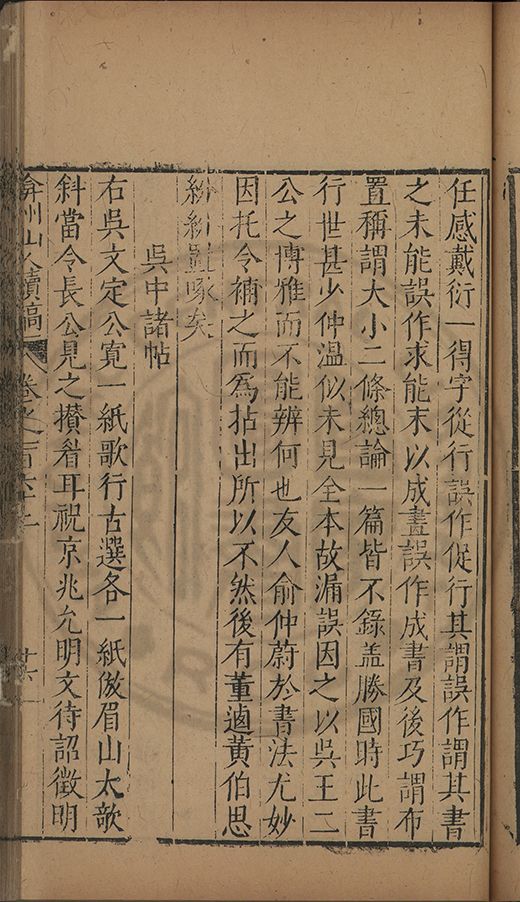 任感戴衍一得字從行誤作促行其謂誤作謂其書
之未能誤作求能末以成畫誤作成書及後巧謂布
置稱謂大小二條總論一篇皆不錄盖勝國時此書
行世甚少仲溫似未見全本故漏誤因之以吳王二
公之博雅而不能辨何也友人俞仲蔚於書法尤妙
因托令補之而爲拈出所以不然後有董逌黃伯思
紛紛置啄矣
吳中諸帖
右吳文定公寬一紙歌行古選各一紙倣眉山太欹
斜當令長公見之攅眉耳祝京兆允明文待詔徵明
弇州山人續稿 卷之一百六十二 廿一